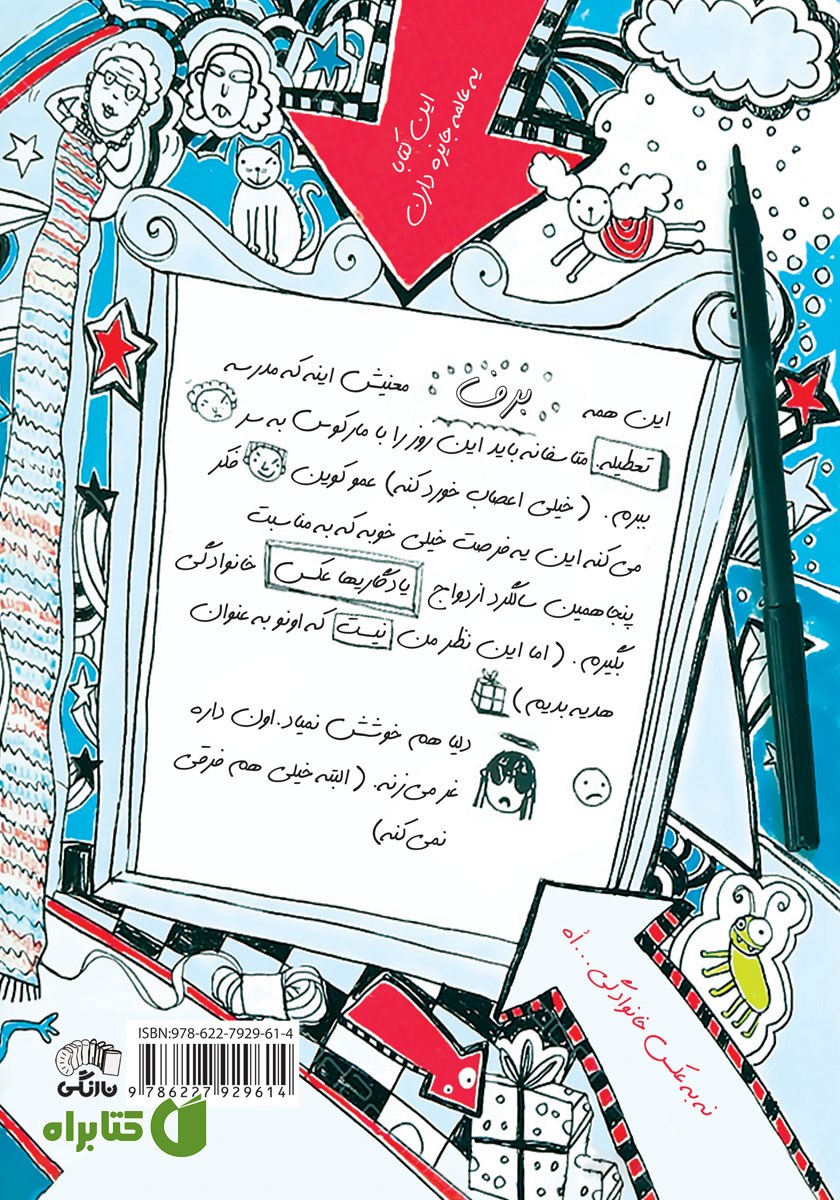 این کتابا
یه عالمه جایزه دارن
این همه برف معنیش اینه که مدرسه
تعطیله. متاسفانه باید این روز را با مارکوس به سر
ببرم. (خیلی اعصاب خورد کنه) عمو کوین فکر
می کنه این یه فرصت خیلی خوبه که به مناسبت
پنجاهمین سالگرد ازدواج یادگاریها عکس خانوادگی
بگیرم. (اما این نظر من نیست که اونو به عنوان
هدیه بدیم)
دلیا هم خوشش نمیاد. اون داره
غر می زنه. (البته خیلی هم فرقی
نمی کنه)
نه به عکس خانوادگی...اه
ISBN:978-622-7929-61-4
9 786227 929614
نارنگی
کتابراه